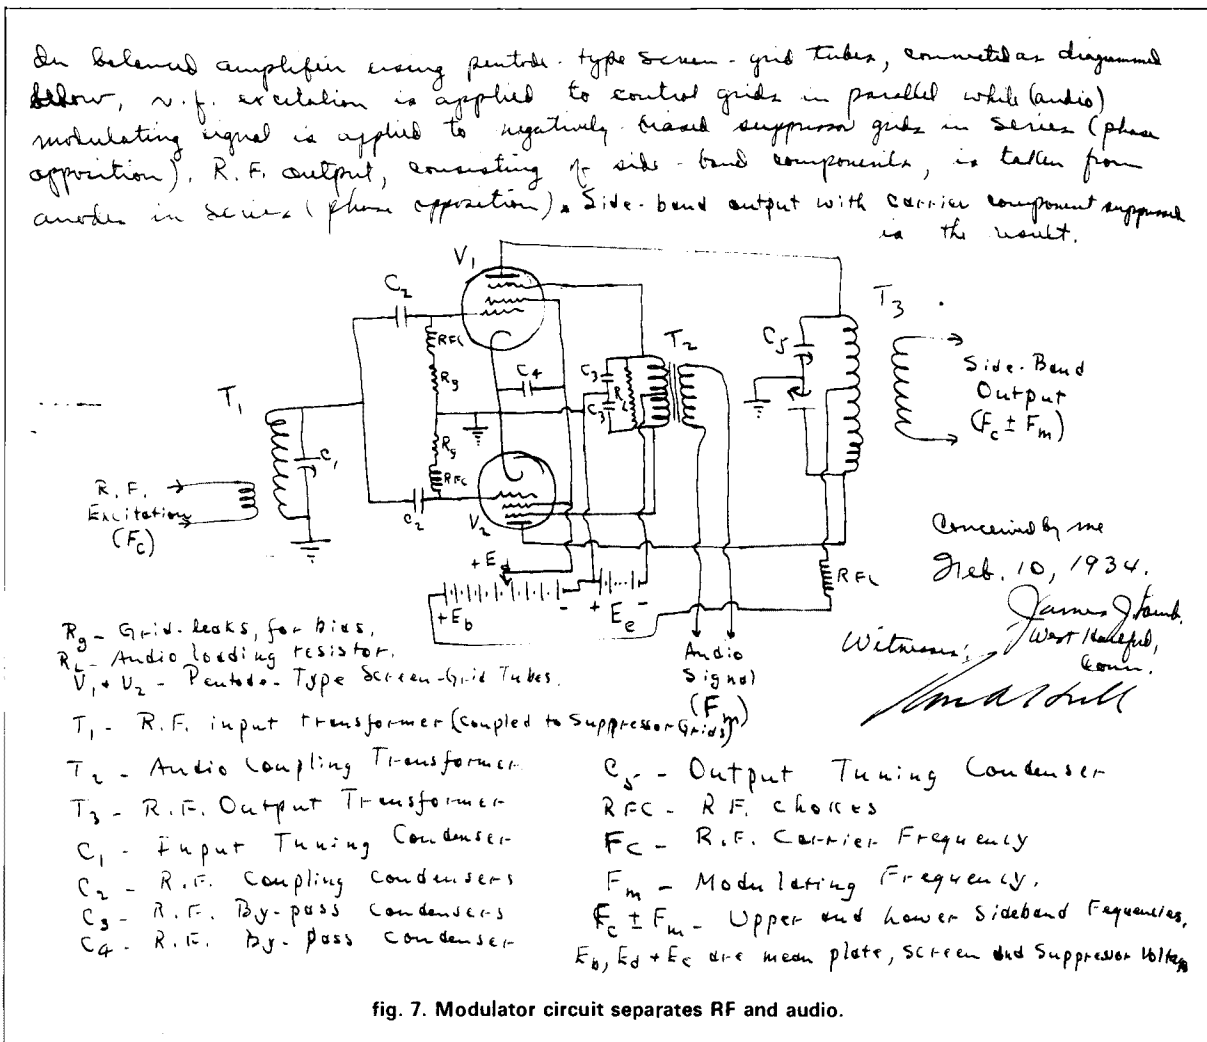 In balanced amplifier using pentode-type screen-grid tubes, connected as diagrammed
below, r.f. excitation is applied to control grids in parallel while (audio)
modulating signal is applied to negatively-biased suppressor grids in series (phase
opposition). R.F. output, consisting of side-band components, is taken from
anodes in series (phase opposition). Side-band output with carrier component suppressed
is the result.
V1
C2
RFC
Rg
C4
C3
RL
C3
T2
C5
T3
Side-Band
Output
(Fc ± Fm)
T1
C1
R.F.
Excitation
(Fc)
Rg
RFC
C2
V2
+ Ed
+Eb
-
+ Ec -
RFC
Audio
Signal
(Fm)
Conceived by me
Feb. 10, 1934.
James J. Lamb.
West Hartford,
Conn.
Witness:
Rg - Grid-leaks, for bias.
RL - Audio loading resistor.
V1 + V2 - Pentode-Type Screen-Grid Tubes.
T1 - R.F. input transformer (coupled to Suppressor Grids)
T2 - Audio Coupling Transformer
T3 - R.F. Output Transformer
C1 - Input Tuning Condenser
C2 - R.F. Coupling Condensers
C3 - R.F. By-pass Condensers
C4 - R.F. By-pass Condenser
C5 - Output Tuning Condenser
RFC - R.F. Chokes
Fc - R.F. Carrier Frequency
Fm - Modulating Frequency.
Fc ± Fm - Upper and Lower Sideband Fequencies.
Eb, Ed + Ec are mean plate, screen and Suppressor Voltages
fig. 7. Modulator circuit separates RF and audio.